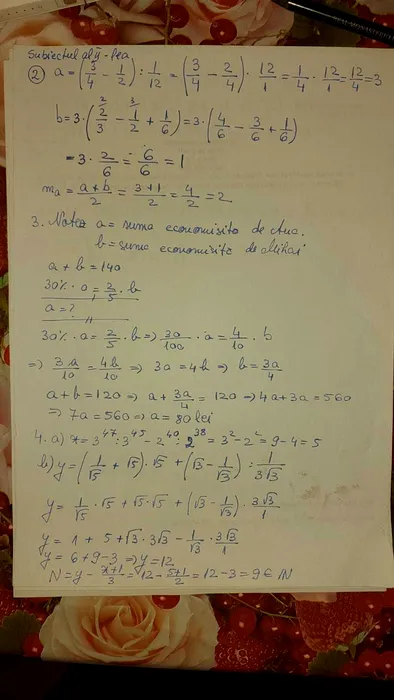 Subiectul al II-lea
2) a = (3/4 - 1/2) : 1/12 = (3/4 - 2/4) · 12/1 = 1/4 · 12/1 = 12/4 = 3
b = 3 · (2/3 - 1/2 + 1/6) = 3 · (4/6 - 3/6 + 1/6)
= 3 · 2/6 = 6/6 = 1
ma = (a+b)/2 = (3+1)/2 = 4/2 = 2
3. Notez a = suma economisita de Ana.
b = suma economisita de Mihai
a + b = 140
30% · a = 2/5 · b
a = ?
30% · a = 2/5 · b => 30/100 · a = 4/10 · b
=> 3a/10 = 4b/10 => 3a = 4b => b = 3a/4
a + b = 120 => a + 3a/4 = 120 => 4a + 3a = 560
=> 7a = 560 => a = 80 lei
4. a) x = 3^47 : 3^45 - 2^40 : 2^38 = 3^2 - 2^2 = 9 - 4 = 5
b) y = (1/√5 + √5) · √5 + (√3 - 1/√3) : 1/3√3
y = 1/√5 · √5 + √5 · √5 + (√3 - 1/√3) · 3√3/1
y = 1 + 5 + √3 · 3√3 - 1/√3 · 3√3/1
y = 6 + 9 - 3 => y = 12
N = y - (x+1)/3 = 12 - (5+1)/2 = 12 - 3 = 9 ∈ ℕ